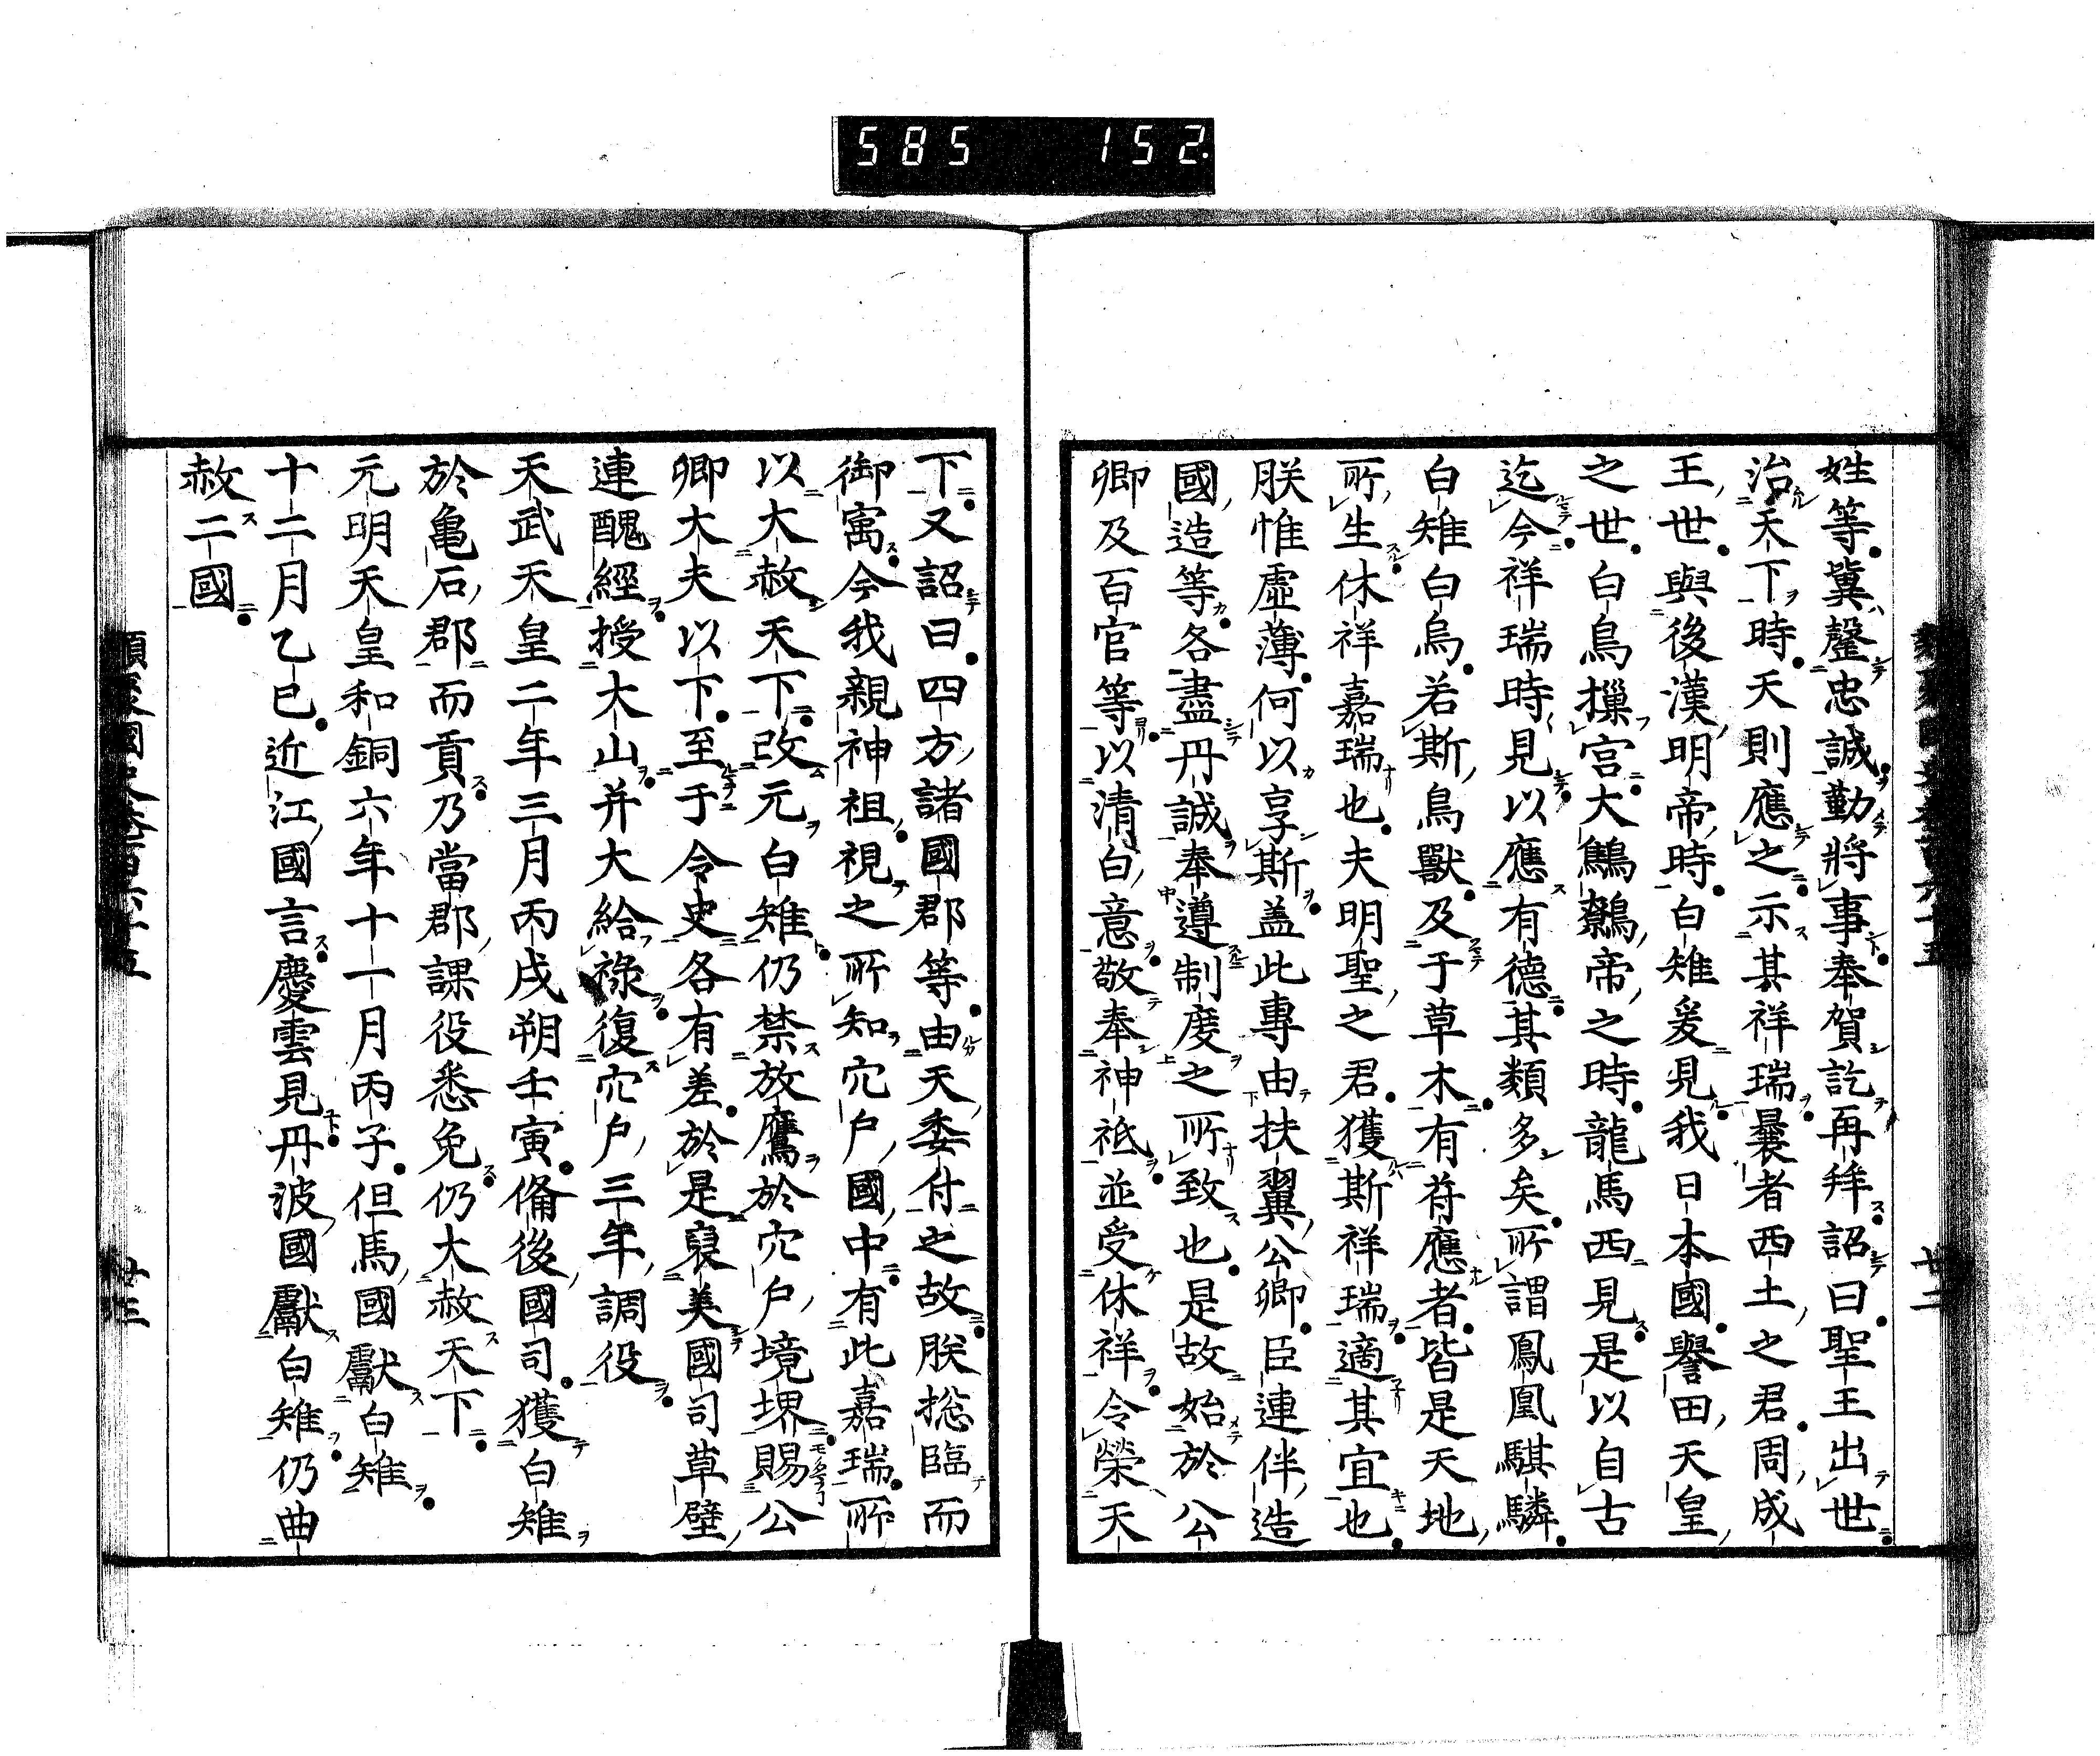 585 152.
姓等冀罄忠誠勤將事奉賀訖再拜詔曰聖王出世
治天下時天則應之示其祥瑞曩者西土之君周成
王世與後漢明帝時白雉爰見我日本國譽田天皇
之世白烏樔宮大鷦鷯帝之時龍馬西見是以自古
迄今祥瑞時見以應有德其類多矣所謂鳳凰騏驎
白雉白烏若斯鳥獸及于草木有苻應者皆是天地
所生休祥嘉瑞也夫明聖之君獲斯祥瑞適其宜也
朕惟虛薄何以享斯盖此專由扶翼公卿臣連伴造
國造等各盡丹誠奉遵制度之所致也是故始於公
卿及百官等以清白意敬奉神祇並受休祥令榮天
下又詔曰四方諸國郡等由天委付之故朕揔臨而
御寓今我親神祖視之所知穴戶國中有此嘉瑞所
以大赦天下改元白雉仍禁放鷹於穴戶境堺賜公
卿大夫以下至于令史各有差於是裒美國司草壁
連醜經授大山并大給祿復穴戶三年調役
天武天皇二年三月丙戌朔壬寅俻後國司獲白雉
於亀石郡而貢乃當郡課役悉免仍大赦天下
元明天皇和銅六年十一月丙子但馬國獻白雉
十二月乙巳近江國言慶雲見丹波國獻白雉仍曲
赦二國